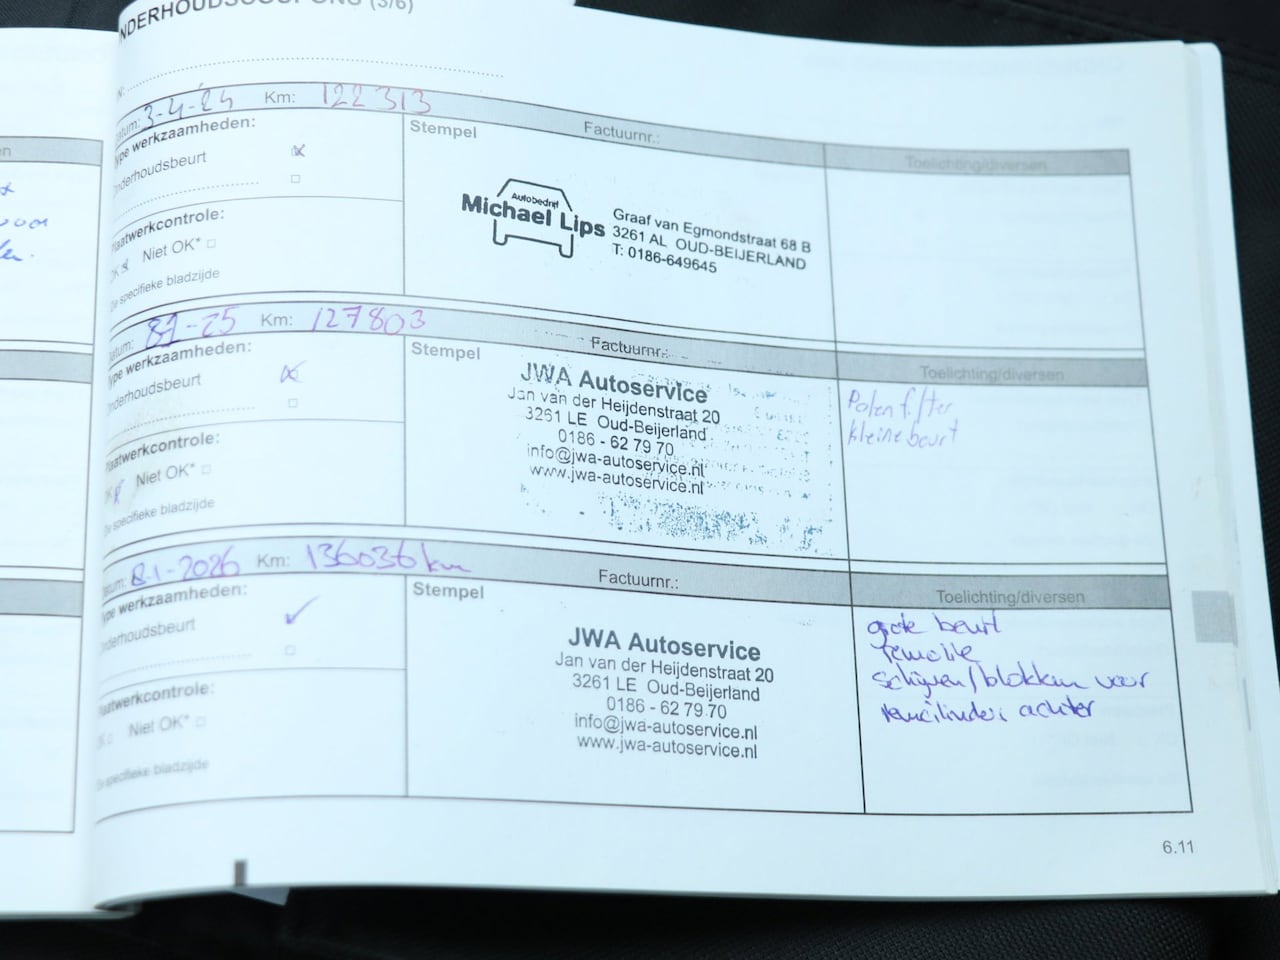 NDERHOUDSCOUPONS (3/6)
N:
Datum: 3-4-24 Km: 122313
Factuurnr.:
Toelichting/diversen
Type werkzaamheden:
Onderhoudsbeurt
Stempel
Autobedrijf
Michael Lips
Graaf van Egmondstraat 68 B
3261 AL OUD-BEIJERLAND
T: 0186-649645
Plaatwerkcontrole:
OK Niet OK*
Zie specifieke bladzijde
Datum: Km: 127803
Factuurnr.:
Toelichting/diversen
Type werkzaamheden:
Onderhoudsbeurt
Stempel
JWA Autoservice
Jan van der Heijdenstraat 20
3261 LE Oud-Beijerland
0186 - 62 79 70
info@jwa-autoservice.nl
www.jwa-autoservice.nl
Polenfilter
kleine beurt
Plaatwerkcontrole:
OK Niet OK*
Zie specifieke bladzijde
Datum: 8-1-2026 Km: 136036 km
Factuurnr.:
Toelichting/diversen
Type werkzaamheden:
Onderhoudsbeurt
Stempel
JWA Autoservice
Jan van der Heijdenstraat 20
3261 LE Oud-Beijerland
0186 - 62 79 70
info@jwa-autoservice.nl
www.jwa-autoservice.nl
grote beurt
remolie
schijven/blokken voor
remcilinders achter
Plaatwerkcontrole:
OK Niet OK*
Zie specifieke bladzijde
6.11